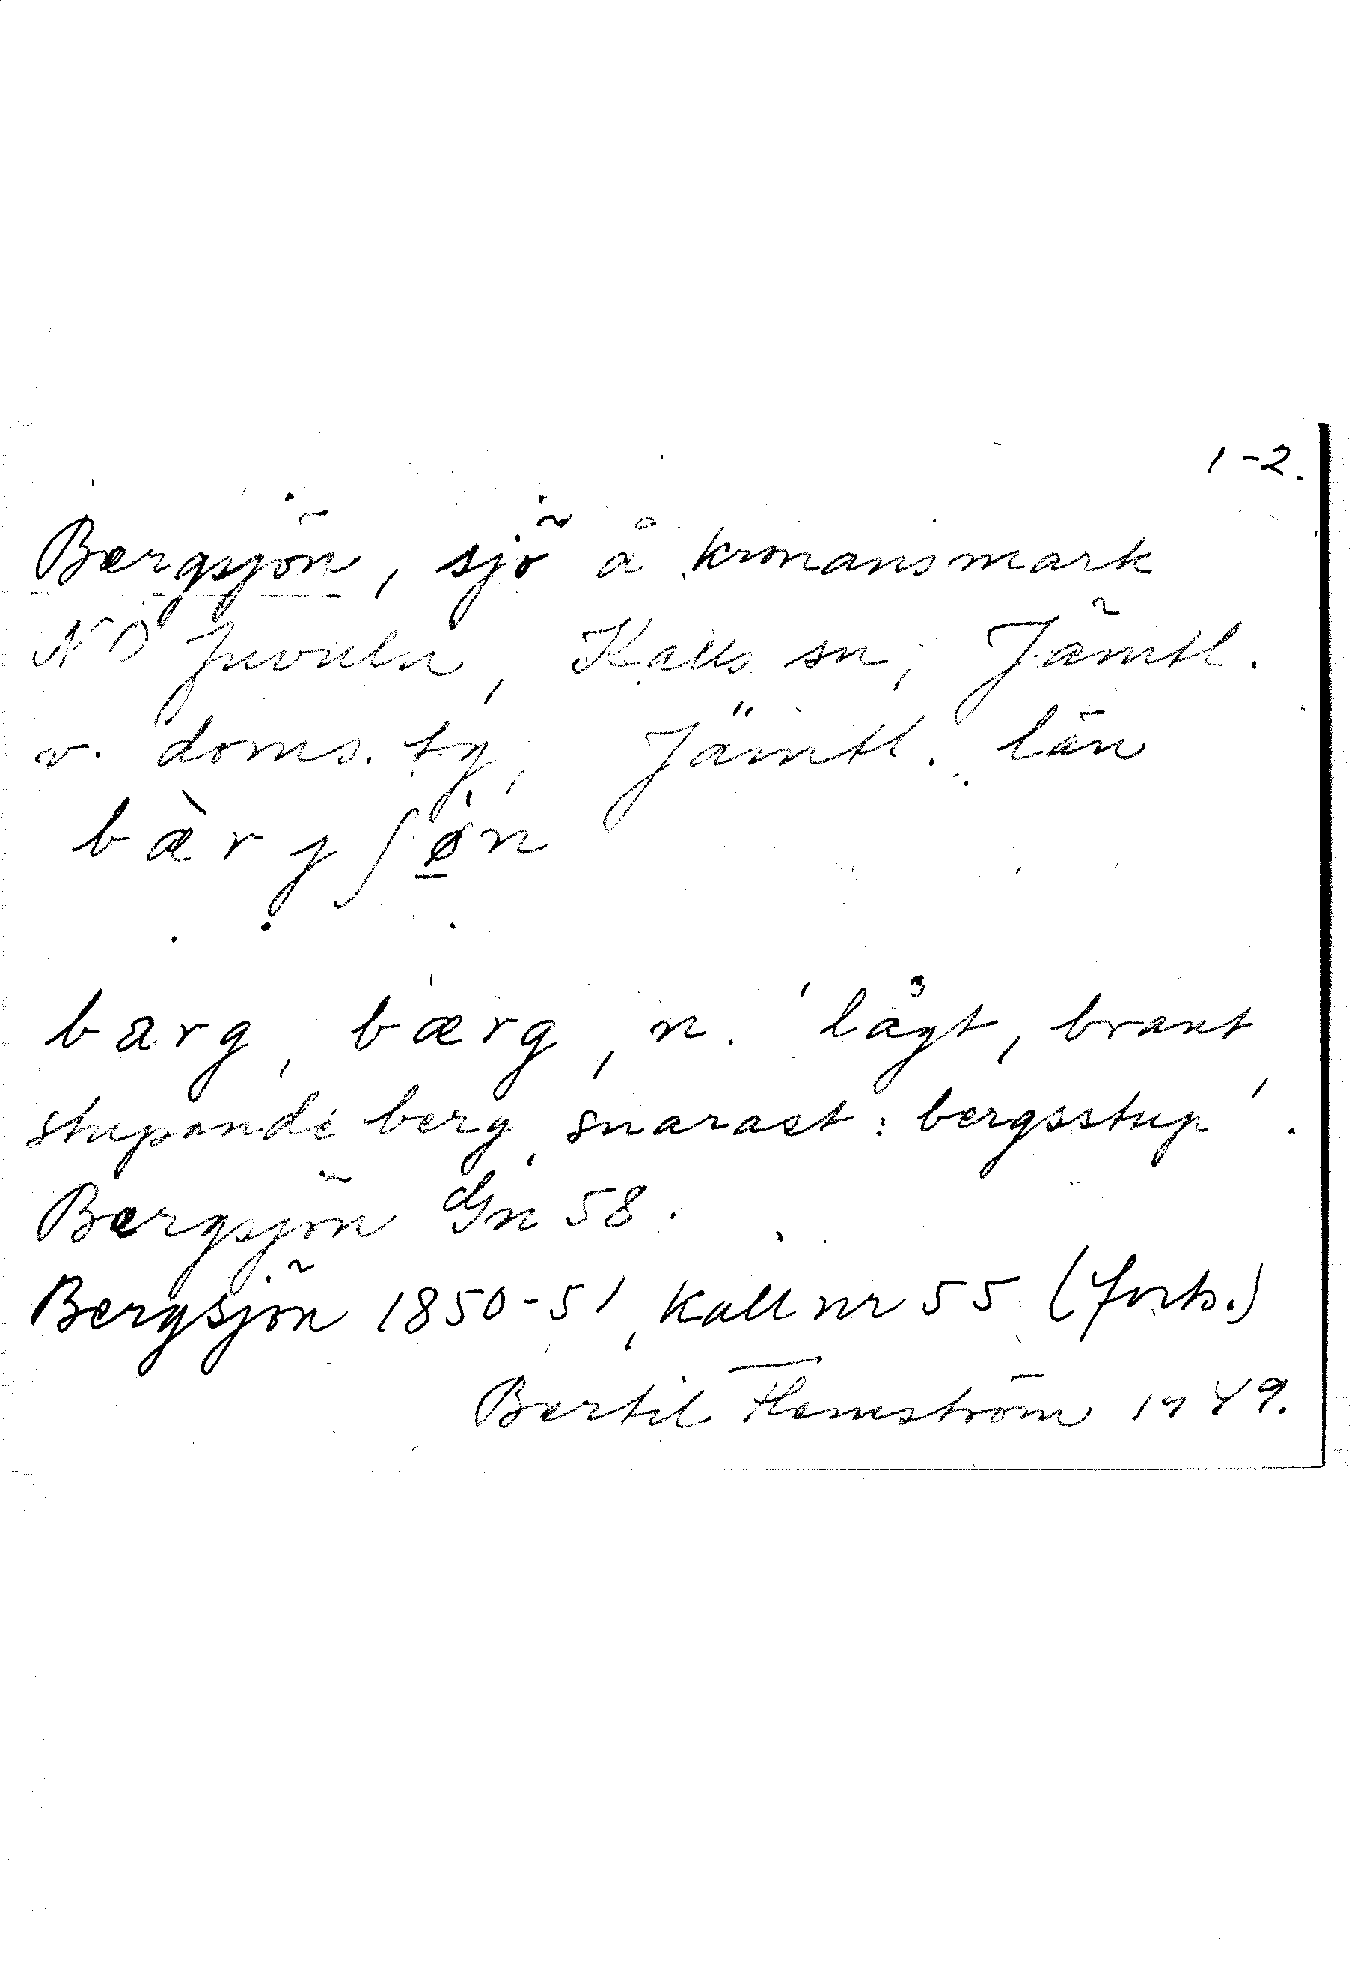 1-2.
Bergsjön, sjö å kronansmark
NO Juvuln, Kalls sn, Jämtl.
v. doms. tg, Jämtl. län
bærgʃøn
barg, bærg, n. 'lågt, brant
stupande berg, snarast: bergsstup'.
Bergsjön Gn 58.
Bergsjön 1850-51, Kall nr 55 (forts.)
Bertil Flemström 1949.